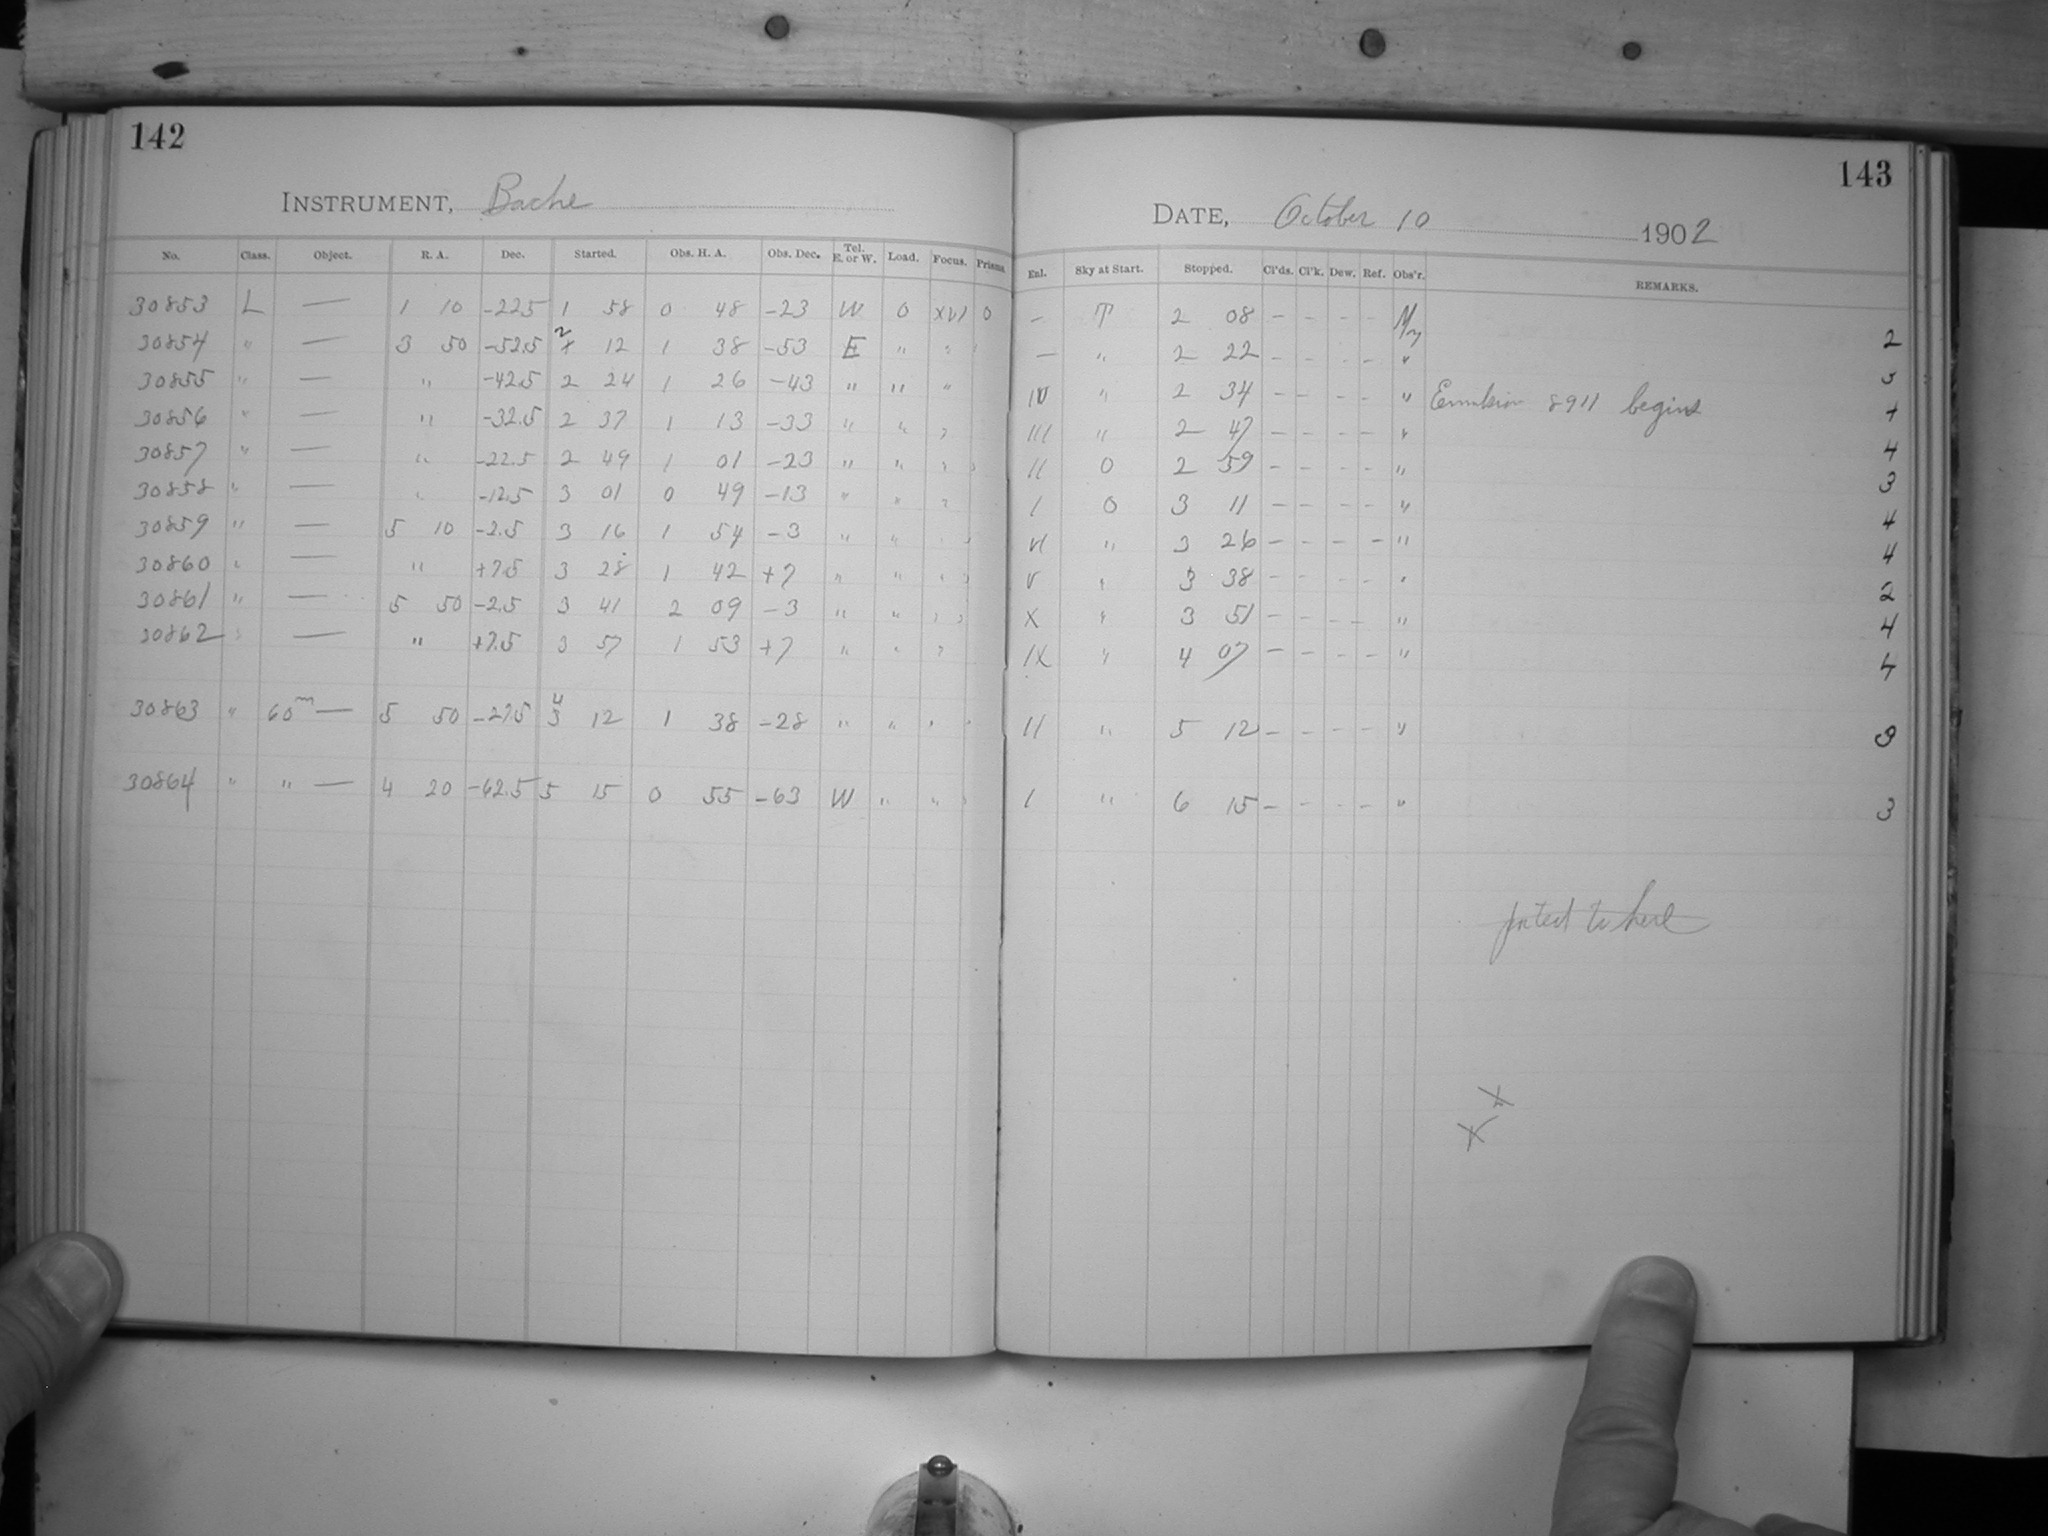 142
INSTRUMENT, Bache
No. Class. Object. R. A. Dec. Started. Obs. H. A. Obs. Dec. Tel. E. or W. Load. Focus. Prisms.
30853 L — 1 10 -22.5 1 58 0 48 -23 W 0 XVI 0
30854 " — 3 50 -52.5 2 12 1 38 -53 E " " "
30855 " — " -42.5 2 24 1 26 -43 " " "
30856 " — " -32.5 2 37 1 13 -33 " " "
30857 " — " -22.5 2 49 1 01 -23 " " " "
30858 " — " -12.5 3 01 0 49 -13 " " "
30859 " — 5 10 -2.5 3 16 1 54 -3 " " " "
30860 " — " +7.5 3 28 1 42 +7 " " " "
30861 " — 5 50 -2.5 3 41 2 09 -3 " " " "
30862 " — " +7.5 3 57 1 53 +7 " " "
30863 " 60m — 5 50 -27.5 4 12 1 38 -28 " " " "
30864 " " — 4 20 -62.5 5 15 0 55 -63 W " " "
143
DATE, October 10 1902
Enl. Sky at Start. Stopped. Cl'ds. Cl'k. Dew. Ref. Obs'r. REMARKS.
— T 2 08 - - - - 2
— " 2 22 - - - - " 3
IV " 2 34 - - - - " Emulsion 8911 begins
III " 2 47 - - - - " 4
II 0 2 59 - - - - " 3
I 0 3 11 - - - - " 4
VI " 3 26 - - - - " 4
V " 3 38 - - - - " 2
X " 3 51 - - - - " 4
IX " 4 07 - - - - " 4
II " 5 12 - - - - " 3
I " 6 15 - - - - " 3
to here
X X